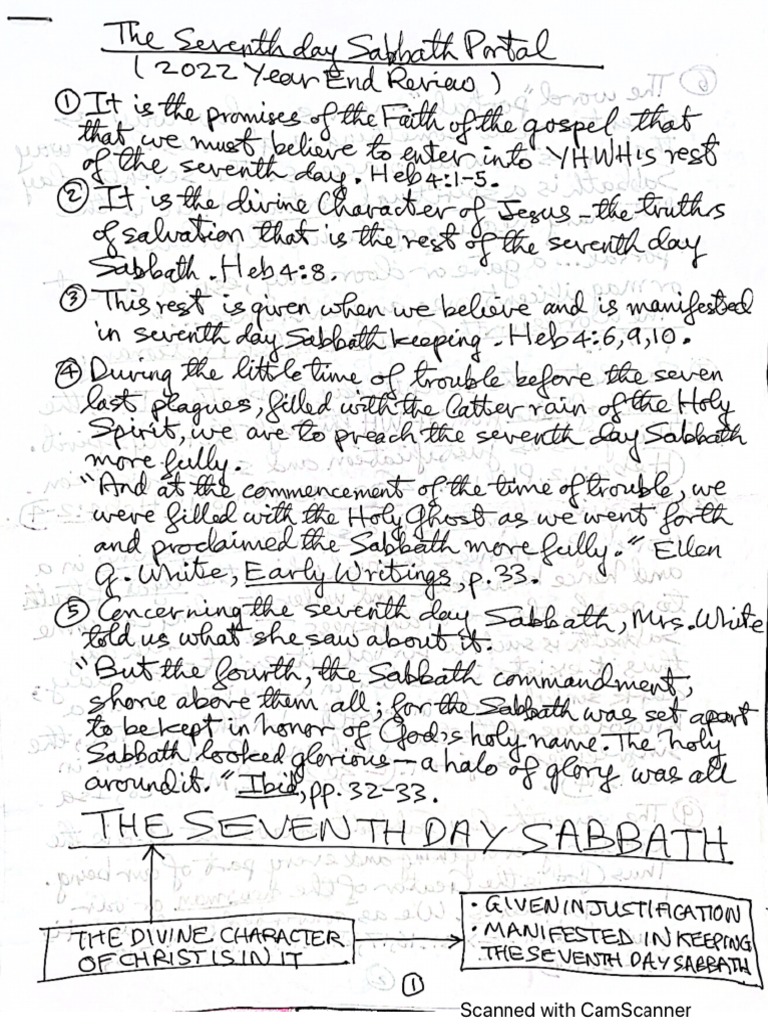 The Seventh day Sabbath Portal
(2022 Year End Review)
① It is the promises of the Faith of the gospel that
that we must believe to enter into YHWH's rest
of the seventh day. Heb 4:1-5.
② It is the divine Character of Jesus - the truths
of salvation that is the rest of the seventh day
Sabbath. Heb 4:8.
③ This rest is given when we believe and is manifested
in seventh day Sabbath keeping. Heb 4:6,9,10.
④ During the little time of trouble before the seven
last plagues, filled with the latter rain of the Holy
Spirit, we are to preach the seventh day Sabbath
more fully.
"And at the commencement of the time of trouble, we
were filled with the Holy Ghost as we went forth
and proclaimed the Sabbath more fully." Ellen
G. White, Early Writings, p.33.
⑤ Concerning the seventh day Sabbath, Mrs. White
told us what she saw about it.
"But the fourth, the Sabbath commandment,
shone above them all; for the Sabbath was set apart
to be kept in honor of God's holy name. The holy
Sabbath looked glorious - a halo of glory was all
around it." Ibid, pp. 32-33.
THE SEVENTH DAY SABBATH
THE DIVINE CHARACTER
OF CHRIST IS IN IT
• GIVEN IN JUSTIFICATION
• MANIFESTED IN KEEPING
THE SEVENTH DAY SABBATH
①
Scanned with CamScanner